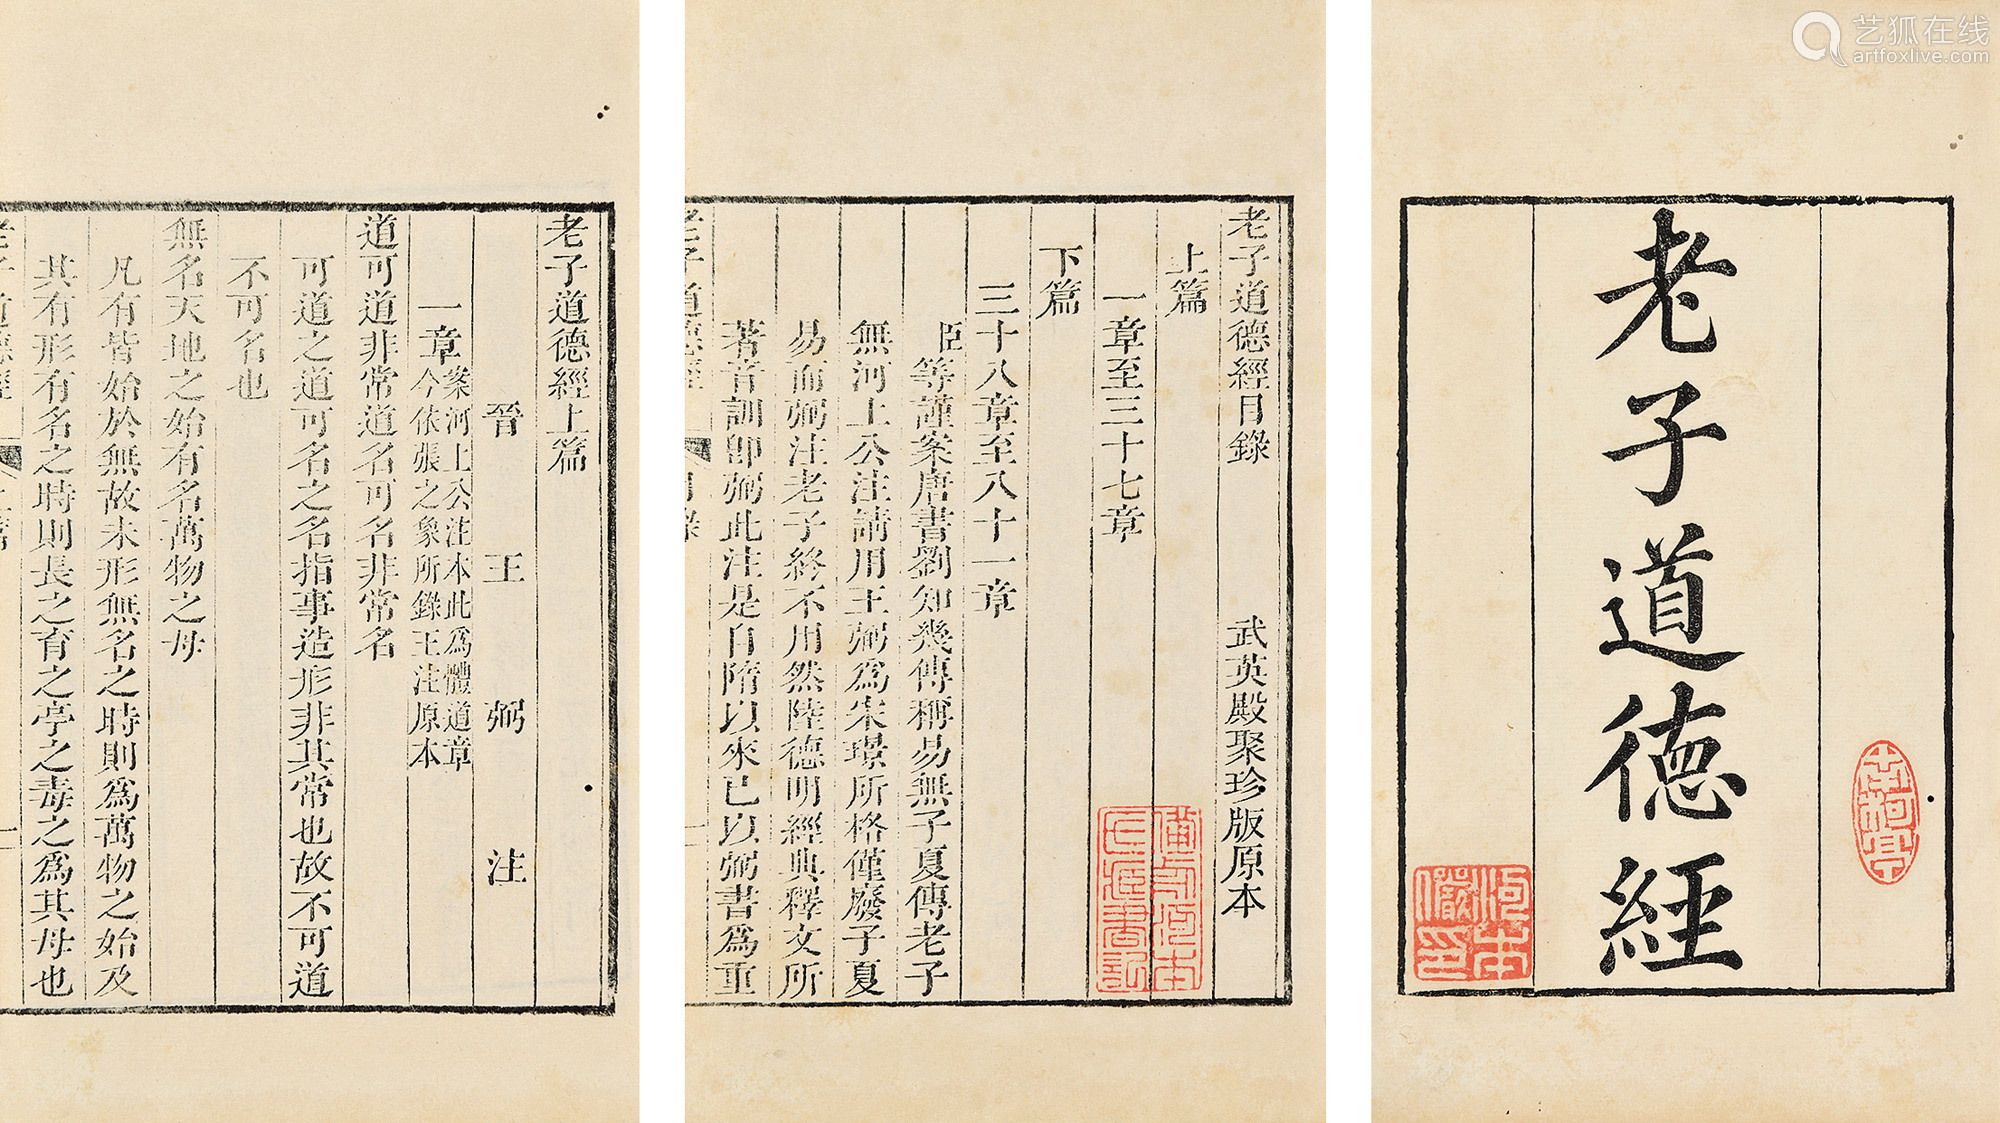 艺狐在线
artfoxlive.com
老子道德經
老子道德經目錄 武英殿聚珍版原本
上篇
一章至三十七章
下篇
三十八章至八十一章
臣等謹案唐書劉知幾傳稱易無子夏傳老子
無河上公注請用王弼爲宋璟所格僅廢子夏
易而弼注老子終不用然陸德明經典釋文所
著音訓卽弼此注是自隋以來已以弼書爲重
老子道德經 目錄 一
老子道德經上篇
晉 王 弼 注
一章案河上公注本此爲體道章
今依張之象所錄王注原本
道可道非常道名可名非常名
可道之道可名之名指事造形非其常也故不可道
不可名也
無名天地之始有名萬物之母
凡有皆始於無故未形無名之時則爲萬物之始及
其有形有名之時則長之育之亭之毒之爲其母也
老子道德經 上篇 一